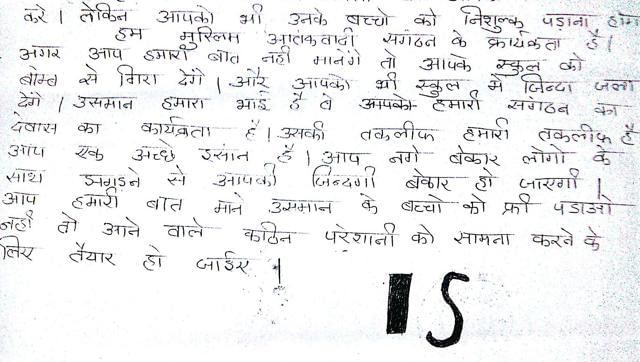 करे। लेकिन आपको भी उनके बच्चो को निशुल्क पड़ाना होगा
हम मुस्लिम आतकवादी सगंठन के कार्यकता है।
अगर आप हमारी बात नही मानेंगे तो आपके स्कुल को
बोम्ब से गिरा देंगे। और आपको भी स्कुल मे जिन्दा जला
देंगे। उसमान हमारा भाई है वे आपको हमारी सगंठन का
देवास का कार्यक्रता है। उसकी तकलीफ हमारी तकलीफ है
आप एक अच्छे इसांन है। आप नगे बेकार लोगो के
साथ झगड़ने से आपकी जिन्दगी बेकार हो जाएगी।
आप हमारी बात माने उसमान के बच्चो को फ्री पडाओ
नही तो आने वाले कठिन परेशानी को सामना करने के
लिए तैयार हो जाईए।
IS